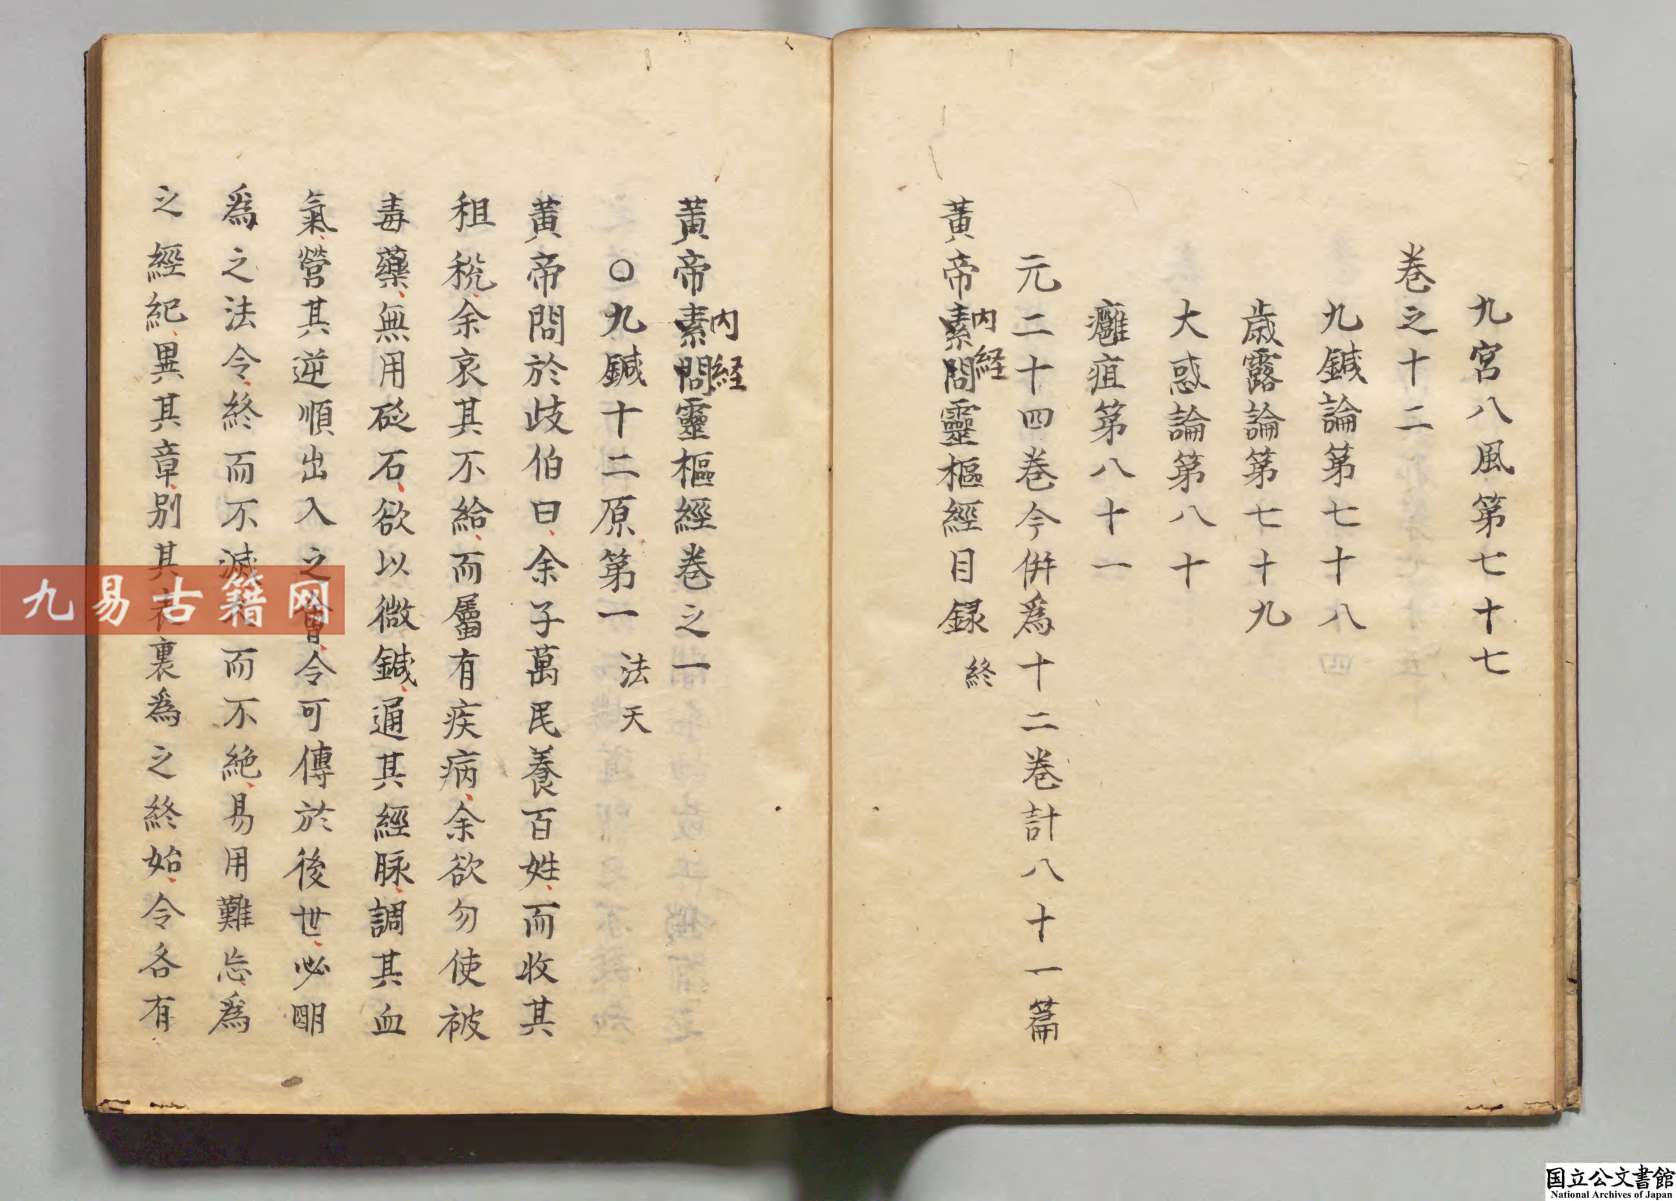 九宮八風第七十七
卷之十二
九鍼論第七十八
歲露論第七十九
大惑論第八十
癰疽第八十一
元二十四卷今併爲十二卷計八十一篇
黃帝素問靈樞經目録 終
内経
黃帝素問靈樞經卷之一
内経
〇九鍼十二原第一 法天
黃帝問於歧伯曰、余子萬民養百姓、而收其
租稅、余哀其不給、而屬有疾病、余欲勿使被
毒藥、無用砭石、欲以微鍼、通其經脉、調其血
氣、營其逆順出入之會、令可傳於後世、必明
爲之法令、終而不滅 而不絶、易用難忘爲
之經紀、異其章、別其表裏爲之終始、令各有
九易古籍网
国立公文書館
National Archives of Japan